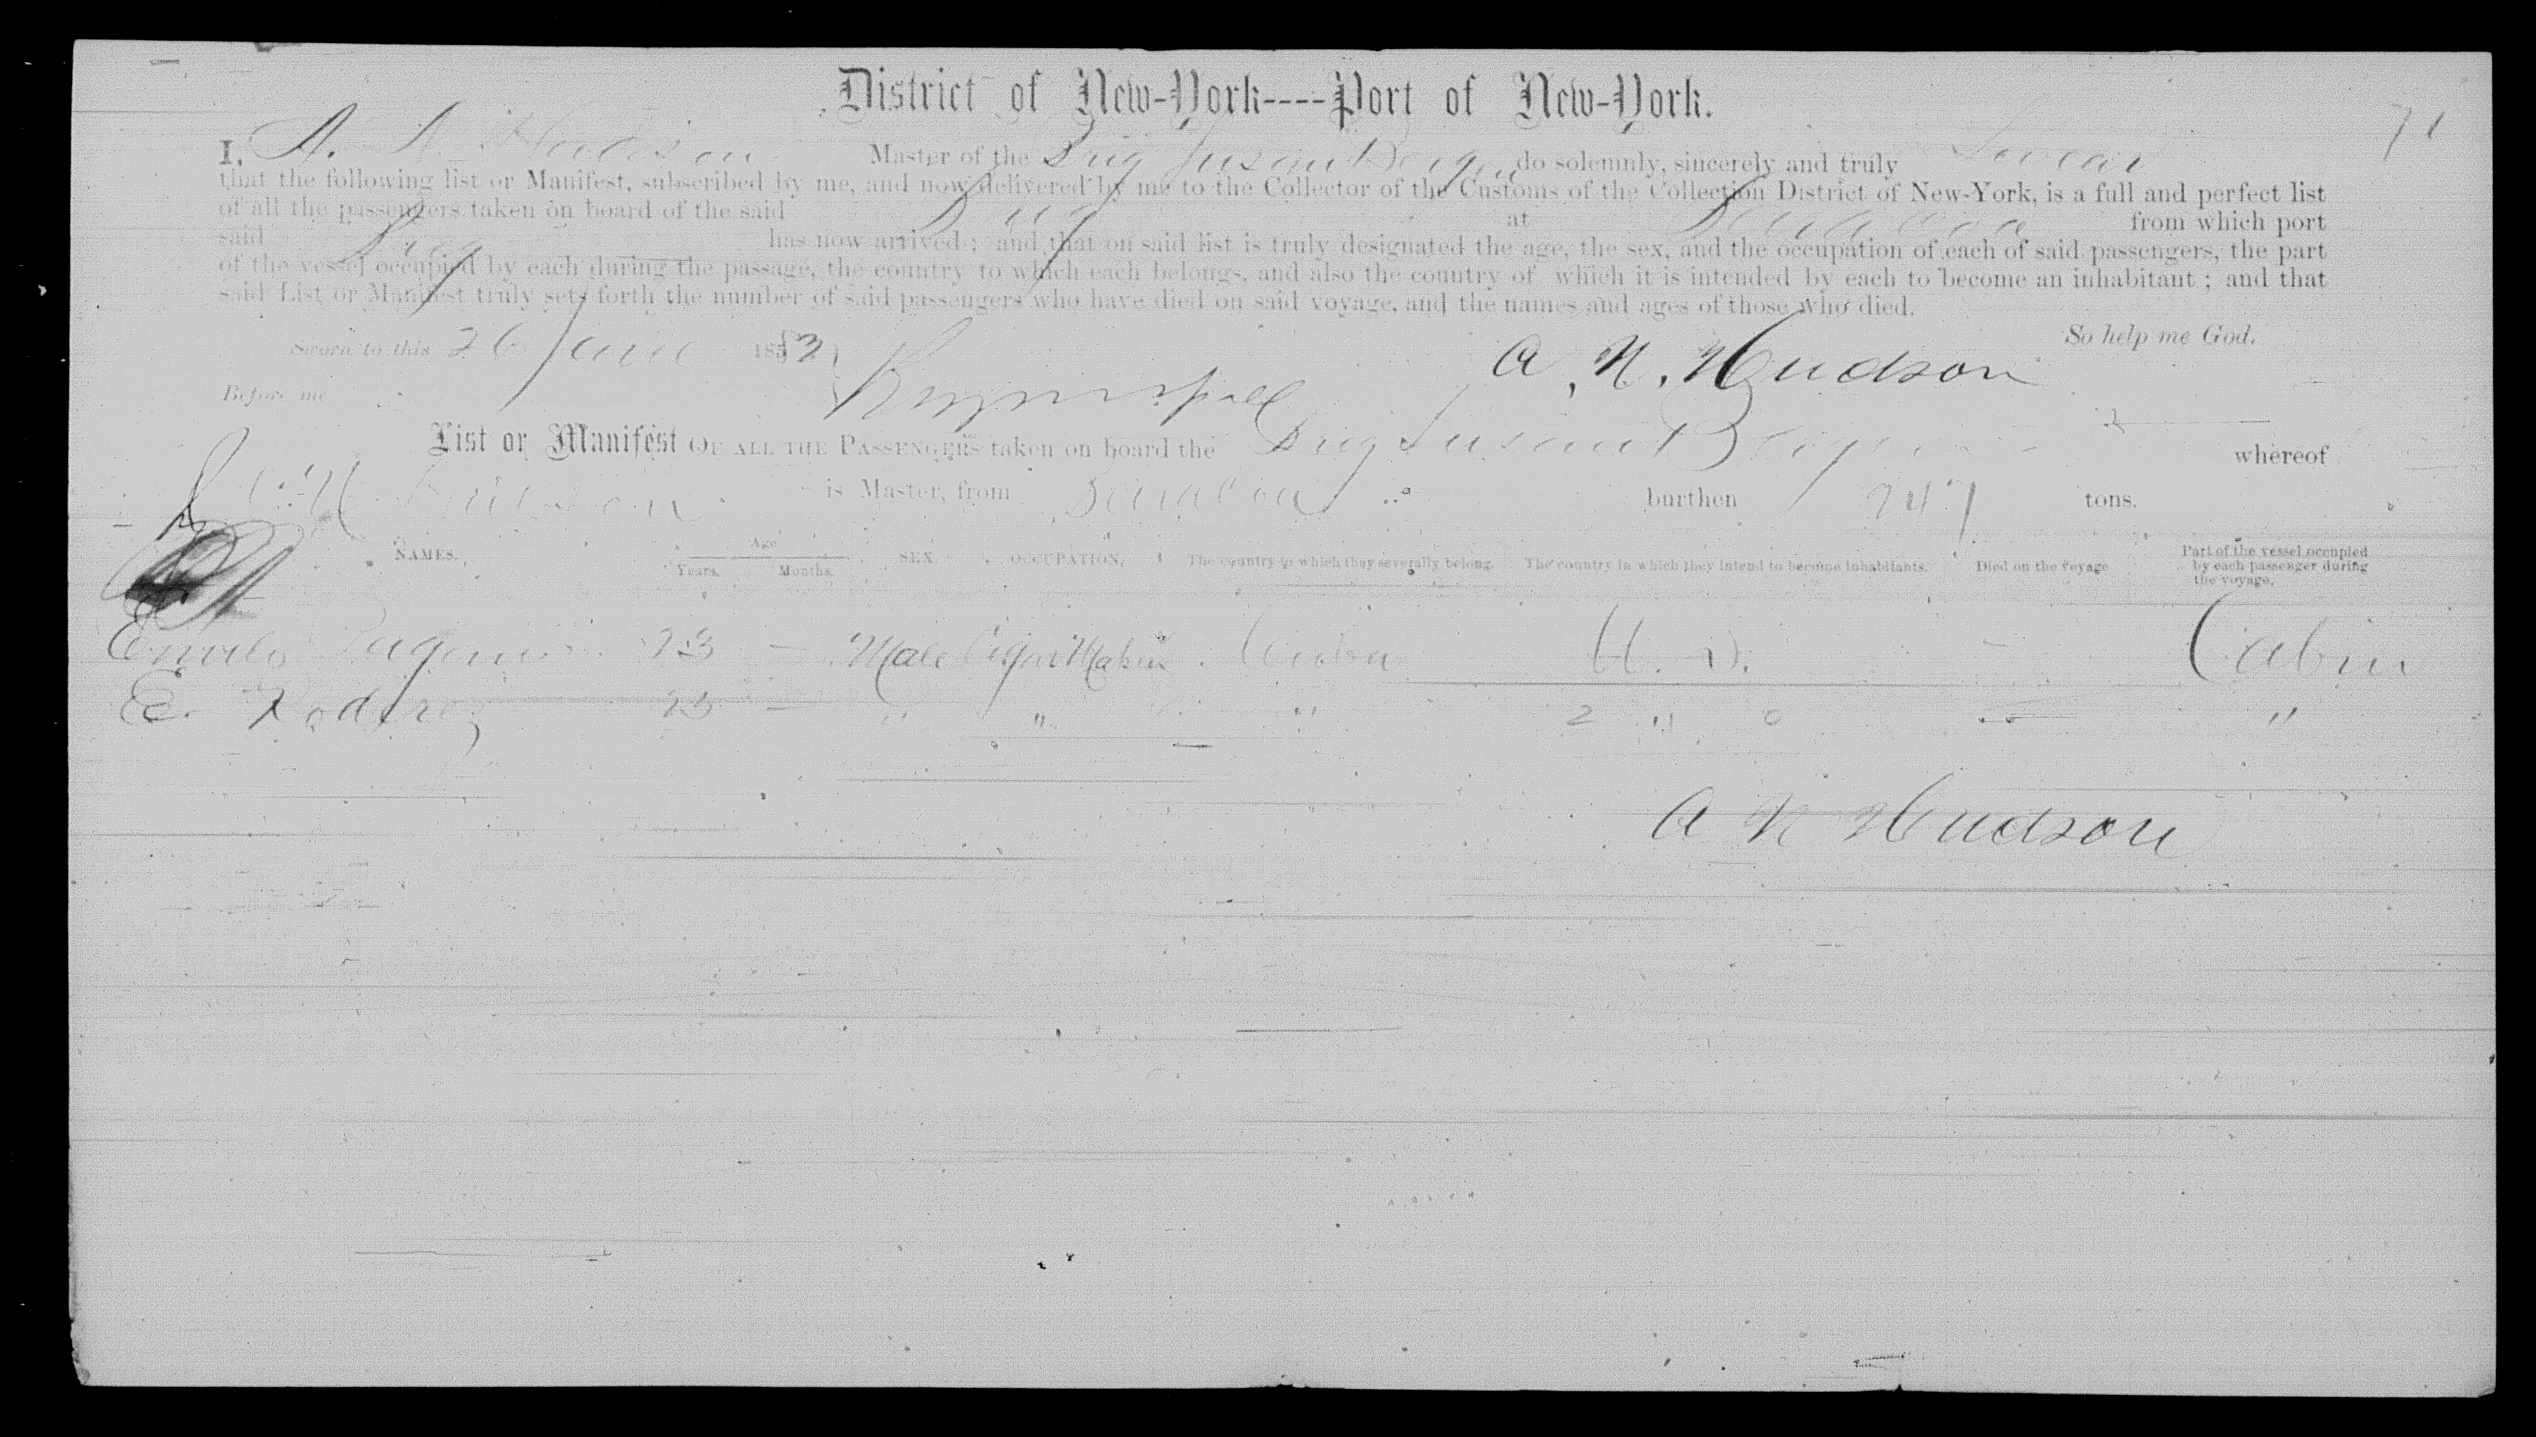 District of New-York----Port of New-York.
71
I, A. N. Hudson Master of the Brig Susan Bergen do solemnly, sincerely and truly Swear
that the following list or Manifest, subscribed by me, and now delivered by me to the Collector of the Customs of the Collection District of New-York, is a full and perfect list
of all the passengers taken on board of the said Brig at from which port
said Brig has now arrived; and that on said list is truly designated the age, the sex, and the occupation of each of said passengers, the part
of the vessel occupied by each during the passage, the country to which each belongs, and also the country of which it is intended by each to become an inhabitant; and that
said List or Manifest truly sets forth the number of said passengers who have died on said voyage, and the names and ages of those who died.
So help me God.
Sworn to this 26 June 185 A. N. Hudson
Before me
List or Manifest OF ALL THE PASSENGERS taken on board the Brig Susan Bergen whereof
A. N. Hudson is Master, from burthen 247 tons.
NAMES. Age Years. Months. SEX. OCCUPATION. The country to which they severally belong. The country in which they intend to become inhabitants. Died on the voyage Part of the vessel occupied by each passenger during the voyage.
23 — Male Cigar Maker Cuba — Cabin
E. Rodirez 23 — " " " 2 " 0 — "
A N Hudson